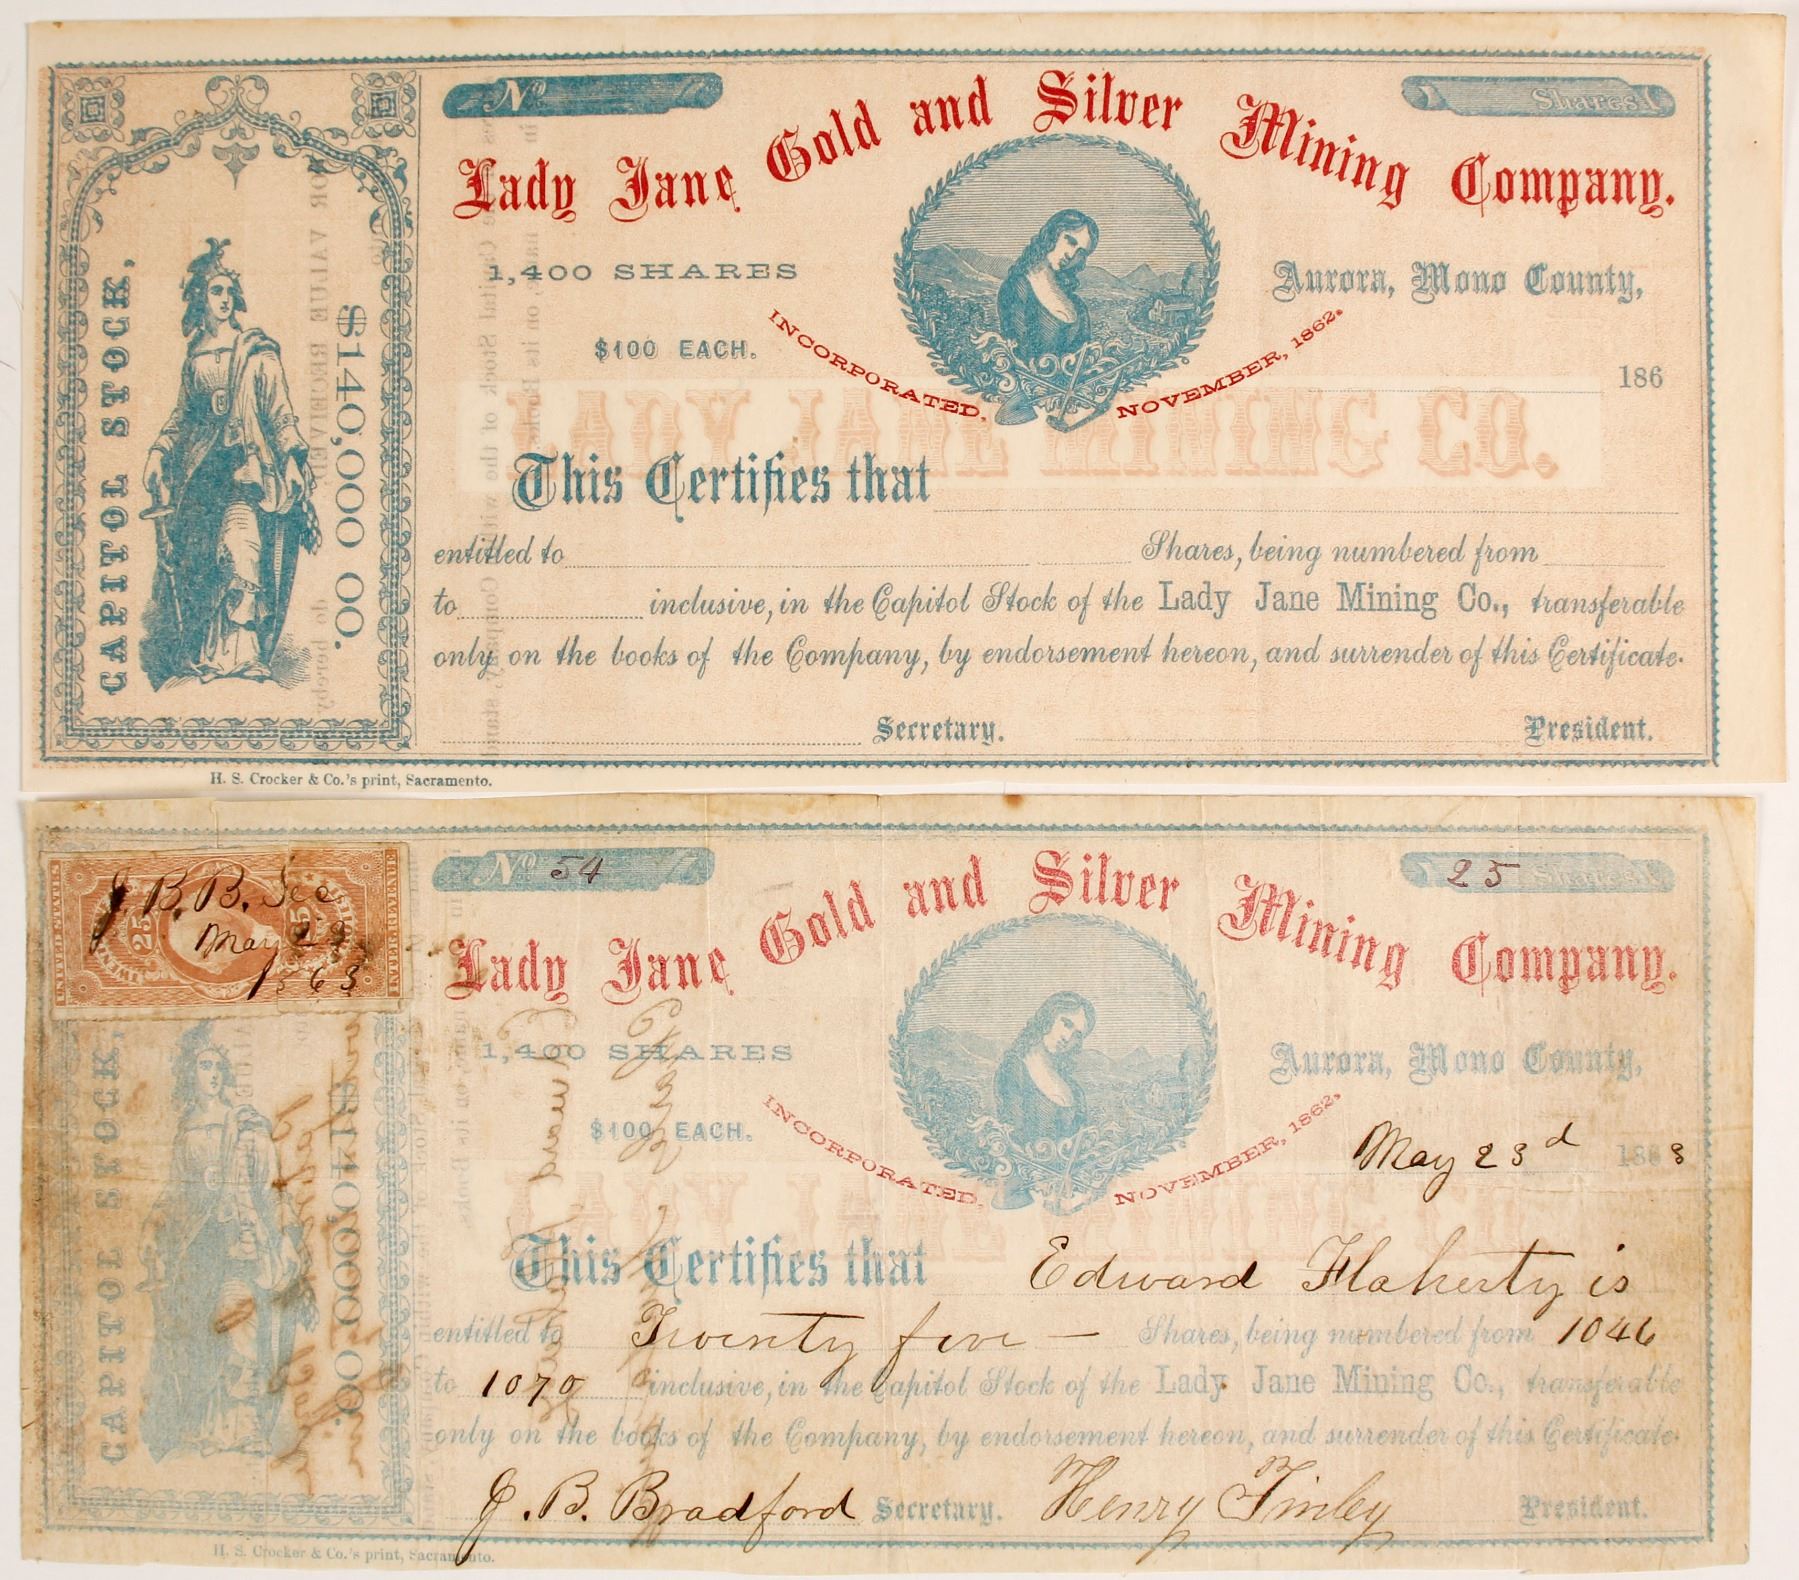 No
Shares
Lady Jane Gold and Silver Mining Company.
1,400 SHARES
$100 EACH.
INCORPORATED, NOVEMBER, 1862.
Aurora, Mono County,
186
CAPITOL STOCK,
$140,000 00.
LADY JANE MINING CO.
This Certifies that
entitled to Shares, being numbered from
to inclusive, in the Capitol Stock of the Lady Jane Mining Co., transferable
only on the books of the Company, by endorsement hereon, and surrender of this Certificate.
Secretary. President.
H. S. Crocker & Co.'s print, Sacramento.
UNITED STATES
INTER. REVENUE
25
25
J. B. B. Sec
May 23
1863
No 54
25 Shares
Lady Jane Gold and Silver Mining Company.
1,400 SHARES
$100 EACH.
INCORPORATED, NOVEMBER, 1862.
Aurora, Mono County,
May 23d 1863
CAPITOL STOCK,
$140,000 00.
LADY JANE MINING CO.
This Certifies that Edward Flaherty is
entitled to Twenty five — Shares, being numbered from 1046
to 1070 inclusive, in the Capitol Stock of the Lady Jane Mining Co., transferable
only on the books of the Company, by endorsement hereon, and surrender of this Certificate.
J. B. Bradford Secretary. Henry Finley President.
H. S. Crocker & Co.'s print, Sacramento.